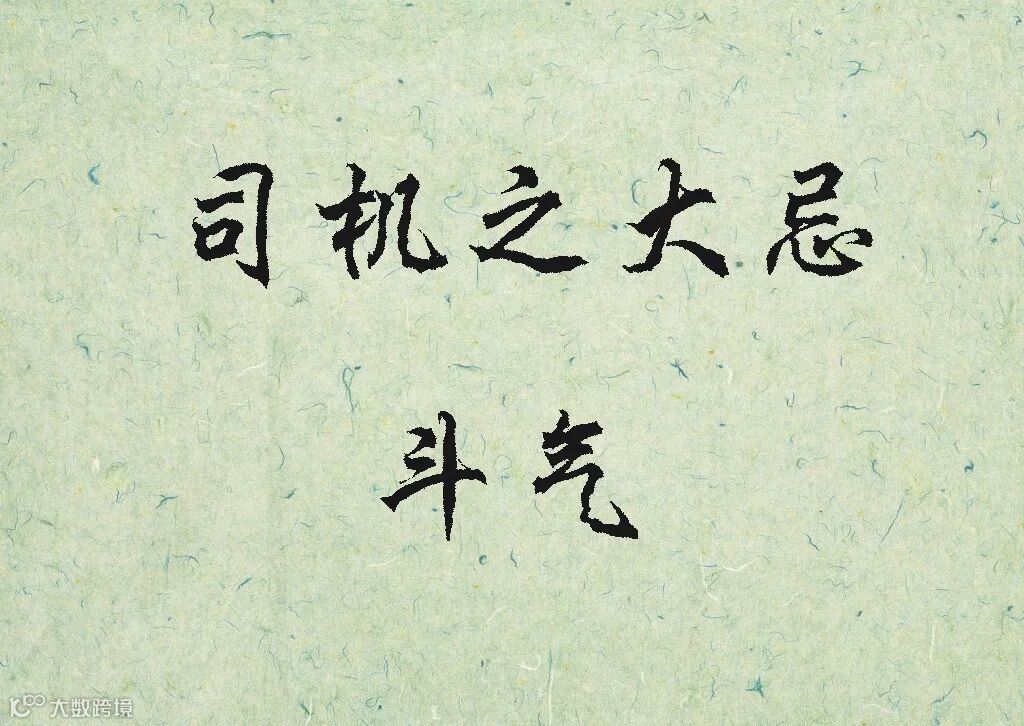 司机之大忌
斗气
大数跨境